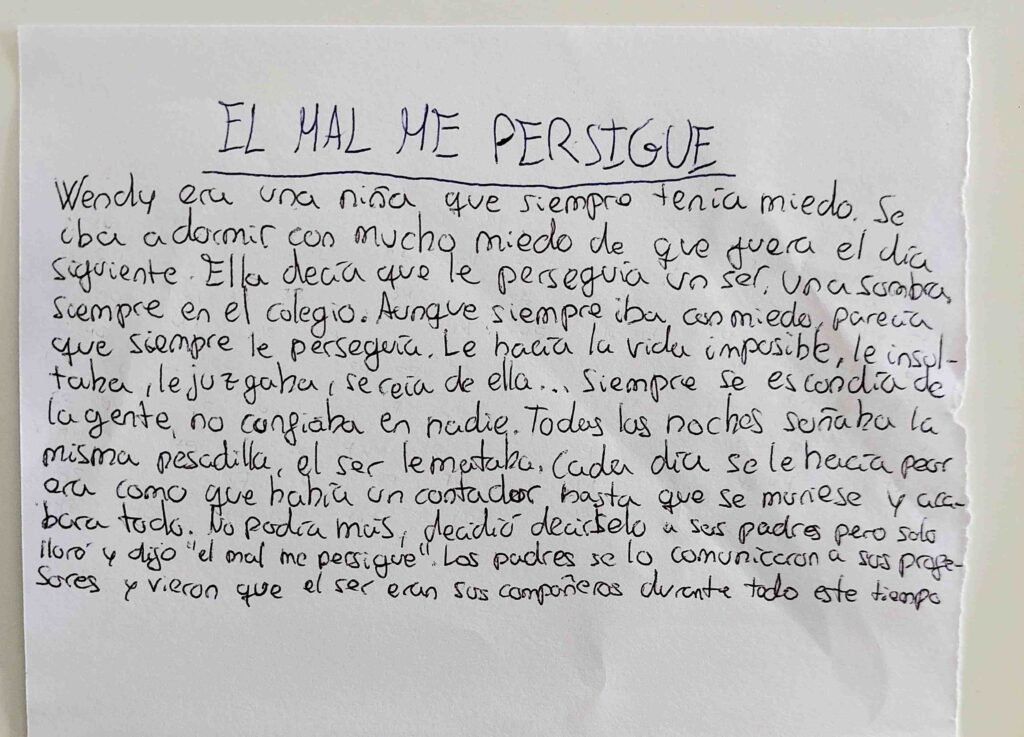 EL MAL ME PERSIGUE
Wendy era una niña que siempre tenía miedo. Se
iba a dormir con mucho miedo de que fuera el día
siguiente. Ella decía que le perseguía un ser, una sombra,
siempre en el colegio. Aunque siempre iba con miedo, parecía
que siempre le perseguía. Le hacía la vida imposible, le insul-
taba, le juzgaba, se reía de ella... Siempre se escondía de
la gente, no confiaba en nadie. Todas las noches soñaba la
misma pesadilla, el ser le mataba. Cada día se le hacía peor
era como que había un contador hasta que se muriese y aca-
bara todo. No podía más, decidió decírselo a sus padres pero solo
lloró y dijo "el mal me persigue". Los padres se lo comunicaron a sus profe-
sores y vieron que el ser eran sus compañeros durante todo este tiempo